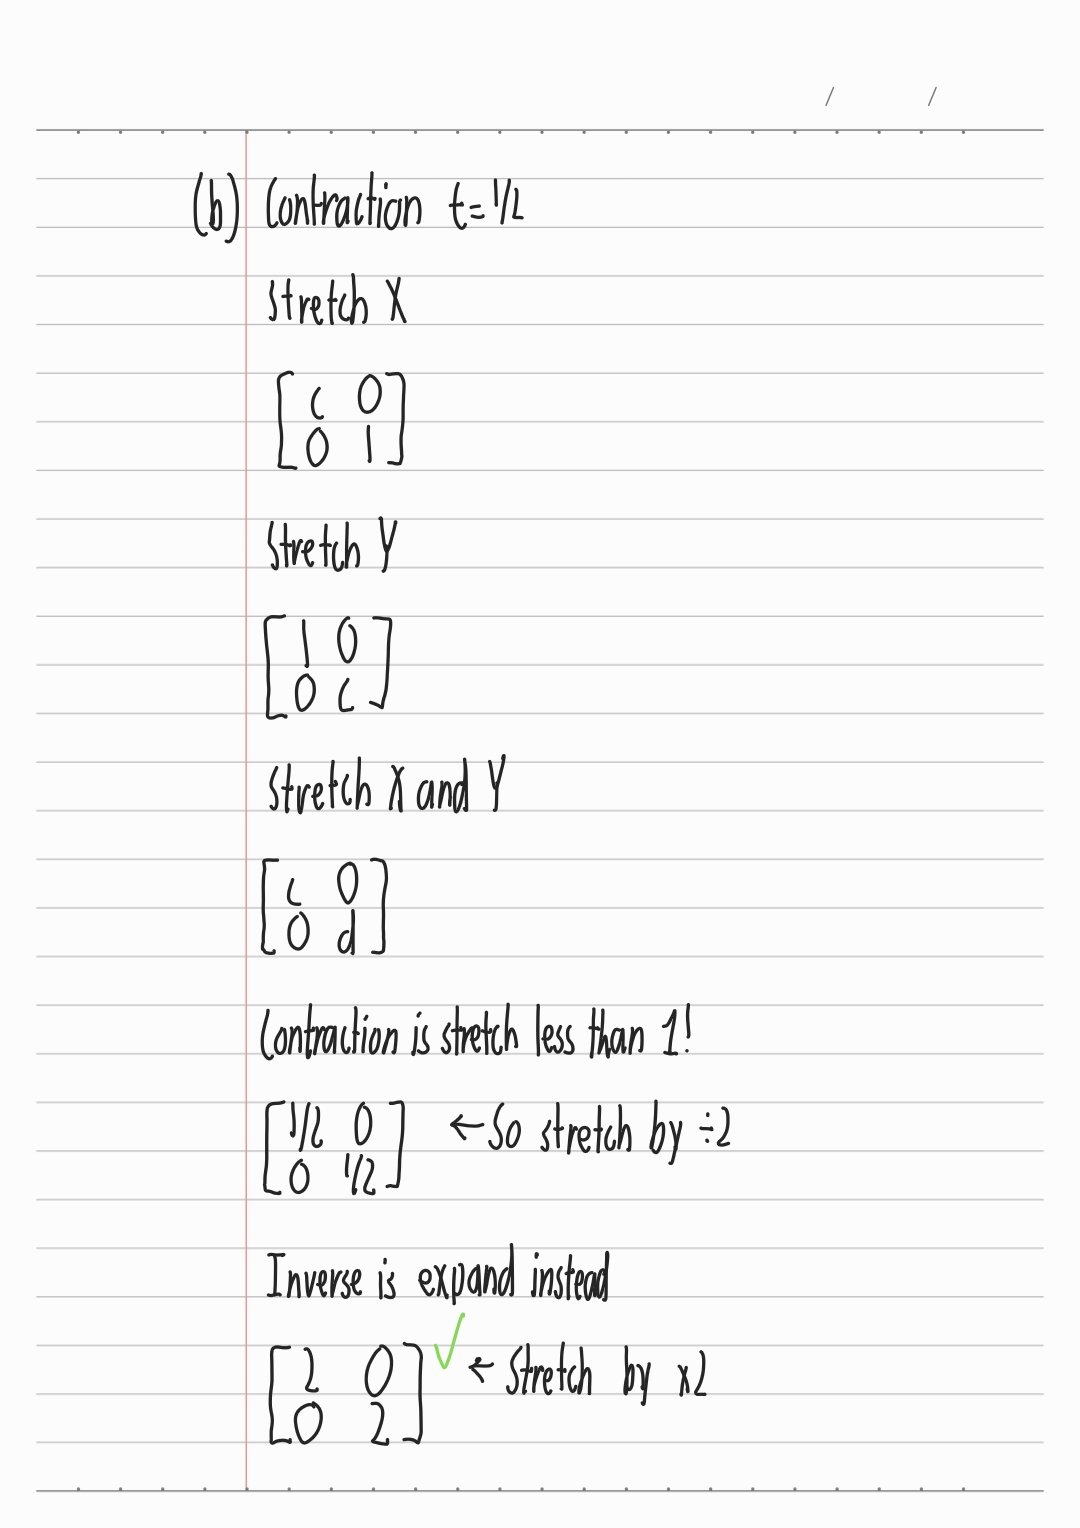 / /
(b) Contraction t=1/2
Stretch X
[ c 0
0 1 ]
Stretch Y
[ 1 0
0 c ]
Stretch X and Y
[ c 0
0 d ]
Contraction is stretch less than 1!
[ 1/2 0
0 1/2 ] ← So stretch by ÷2
Inverse is expand instead
[ 2 0
0 2 ] ✓ ← Stretch by x2